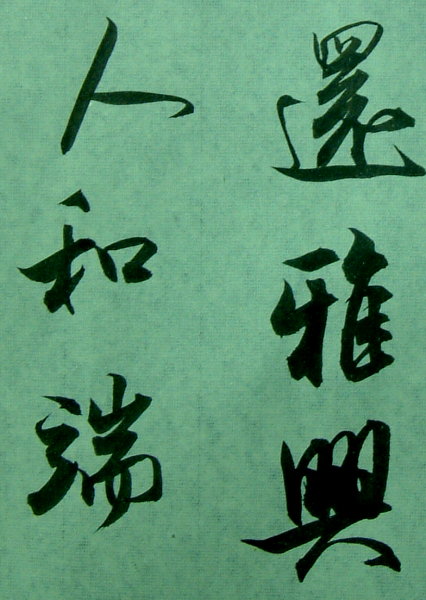 還雅興
人和端